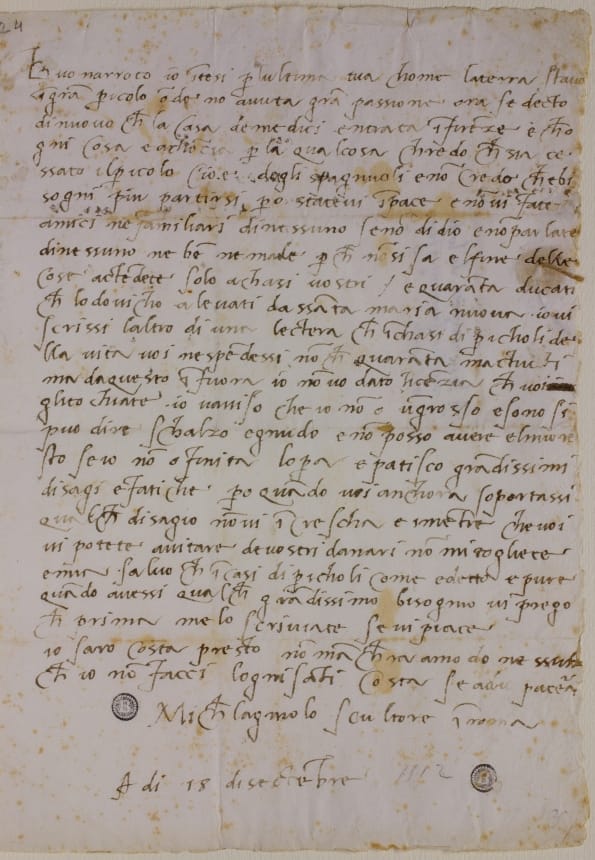 24
Buonarroto io intesi per lultima tua chome laterra stava
ingran pericolo onde no avuta gran passione ora se decto
dinuovo che la casa demedici entrata infirenze e cho
gni cosa e achoncia per la qualcosa chredo che sia ce
ssato ilpericolo cioe degli spagnuoli e non credo che bi
sogni piu partirsi pero statevi inpace e non vi fate
amici ne familiari dinessuno se non di dio e non parlate
dinessuno ne bene ne male perche non si sa el fine delle
cose actendete solo a chasi vostri
e quaranta ducati
che lodovicho a levati da ssanta maria nuova io vi
scrissi laltro di una lectera che in chasi di pericholi de
lla vita voi ne spendessi non che quaranta ma tucti
ma da questo infuora io non vo dato licenzia che voi
gli tochiate io vaviso che io non o un grosso e sono si
puo dire schalzo e gnudo e non posso avere el mio re
sto se io non o finita lopera e patisco grandissimi
disagi e fatiche pero quando voi anchora soportassi
qualche disagio non vi increscha e inmentre che voi
vi potete aiutare de vostri danari non mi togliete
e mia salvo che in casi di pericholi come e decto e pure
quando avessi qualche grandissimo bisogno vi prego
che prima me lo scriviate se vi piace
io saro costa presto non manchera in modo nessuno
che io non facci lognisanti costa se a dio piacera
Michelagniolo scultore in roma
A di 18 di sectembre 1512